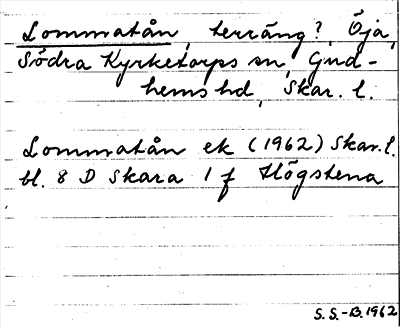 Lommatån, terräng?, Öja,
Södra Kyrketorps sn, Gud-
hems hd, Skar. l.
Lommatån ek (1962) Skar. l.
bl. 8 D Skara 1 f Högstena
S.S.-B. 1962